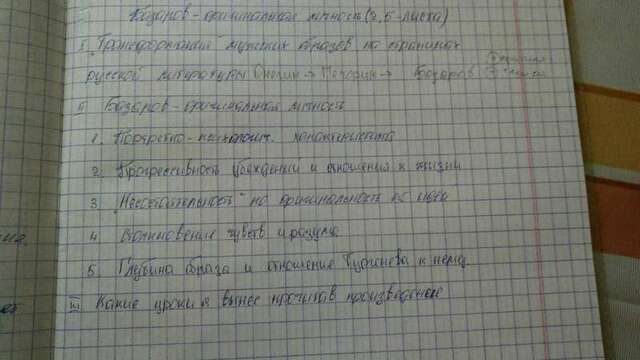 Базаров - оригинальная личность (2,5 листа)
I Трансформация мужских образов на страницах
русской литературы Онегин → Печорин → Базаров
II Базаров - оригинальная личность
1. Портретно-психологич. характеристика
2. Прогрессивность убеждений и отношения к жизни
3. "Несостоятельность" но оригинальность
4. Столкновение чувств и разума
5. Глубина образа и отношение Тургенева к нему
III Какие уроки я вынес прочитав произведение